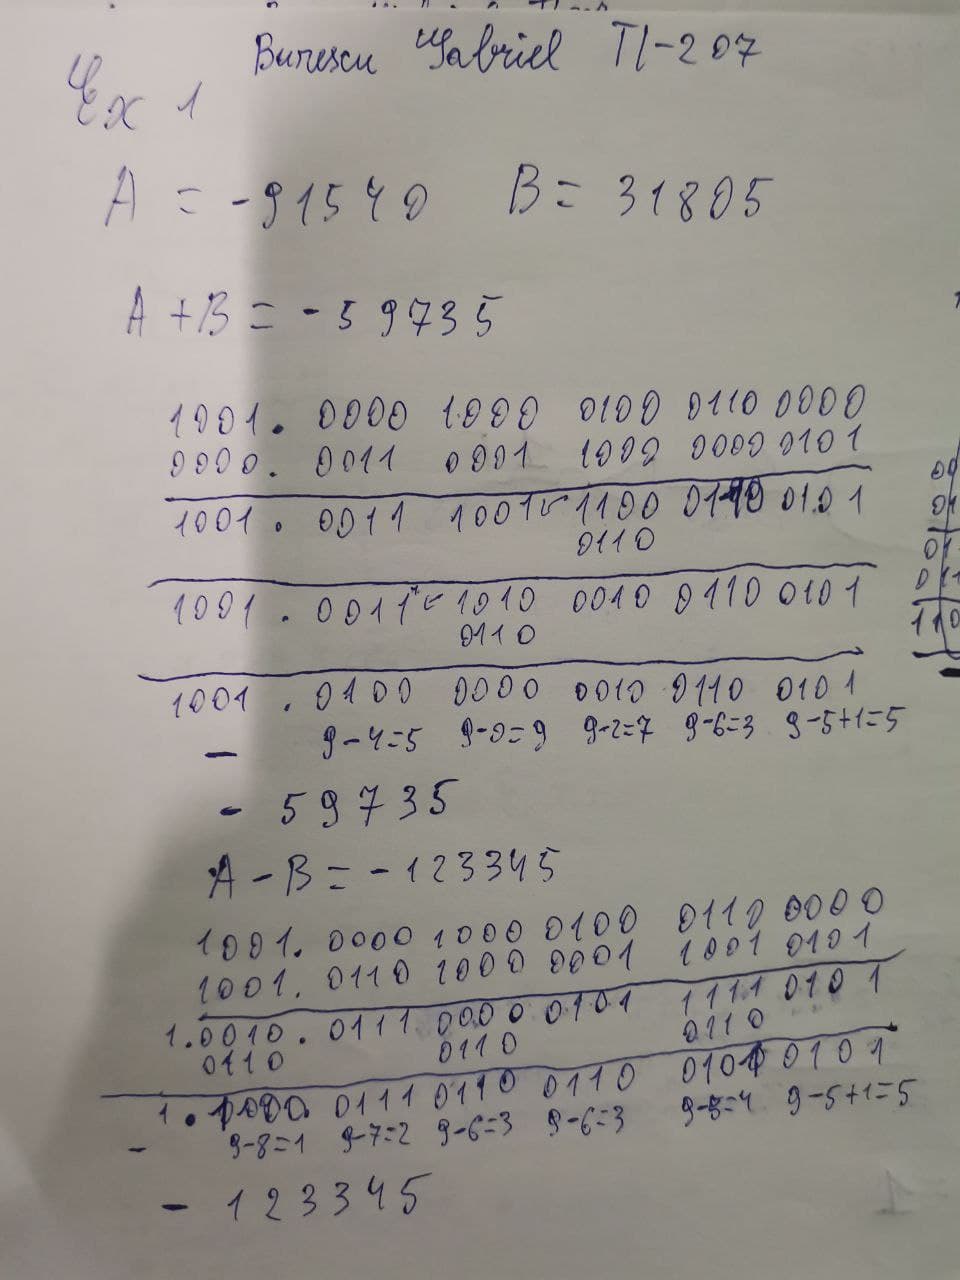 Burescu Gabriel TI-207
Ex 1
A = -91540 B = 31805
A + B = - 59735
1001. 0000 1000 0100 0110 0000
0000. 0011 0001 1000 0000 0101
1001. 0011 1001 1100 0110 0101
0110
1001. 0011 1010 0010 0110 0101
0110
1001. 0100 0000 0010 0110 0101
- 9-4=5 9-0=9 9-2=7 9-6=3 9-5+1=5
- 59735
A - B = - 123345
1001. 0000 1000 0100 0110 0000
1001. 0110 1000 0001 1001 0101
1.0010. 0111 0000 0101 1111 0101
0110 0110 0110
1. 1000. 0111 0110 0110 0101 0101
- 9-8=1 9-7=2 9-6=3 9-6=3 9-5=4 9-5+1=5
- 123345